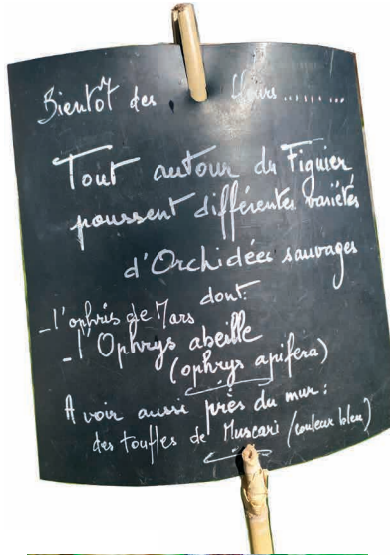 Bientôt des fleurs .........
Tout autour du Figuier
poussent différentes variétés
d'Orchidées sauvages
dont:
- l'ophris de Mars
- l'Ophrys abeille
(ophrys apifera)
A voir aussi près du mur :
des touffes de Muscari (couleur bleu)